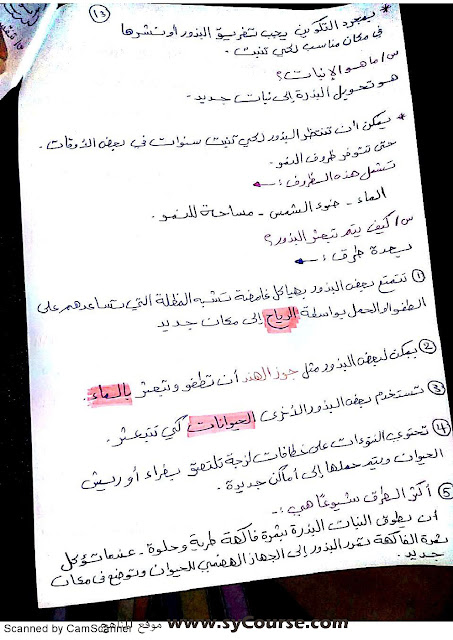 (١٣)
* بمجرد التكوين يجب تفريق البذور أو نشرها
في مكان مناسب لكي تنبت.
س/ ما هو الإنبات؟
هو تحويل البذرة إلى نبات جديد.
* يمكن أن تنتظر البذور لكي تنبت سنوات في بعض الأوقات.
حتى تتوفر ظروف النمو.
تشمل هذه الظروف:
الماء - ضوء الشمس - مساحة للنمو.
س/ كيف يتم تبعثر البذور؟
بعدة طرق:
① تتمتع بعض البذور بهياكل غامضة تشبه المظلة التي تساعدهم على
الطفو أو الحمل بواسطة الرياح إلى مكان جديد
② يمكن لبعض البذور مثل جوز الهند أن تطفو وتبعثر بالماء.
③ تستخدم بعض البذور الأخرى الحيوانات كي تتبعثر.
④ تحتوي النتوءات على خطافات لزجة تلتصق بفراء أو ريش
الحيوان ويتم حملها إلى أماكن جديدة.
⑤ أكثر الطرق شيوعًا هي:-
أن يطوق النبات البذرة بثمرة فاكهة طرية وحلوة. عندما تؤكل
ثمرة الفاكهة تمر البذور إلى الجهاز الهضمي للحيوان وتوضع في مكان
جديد.
موقع المناهج www.syCourse.com
Scanned by CamScanner